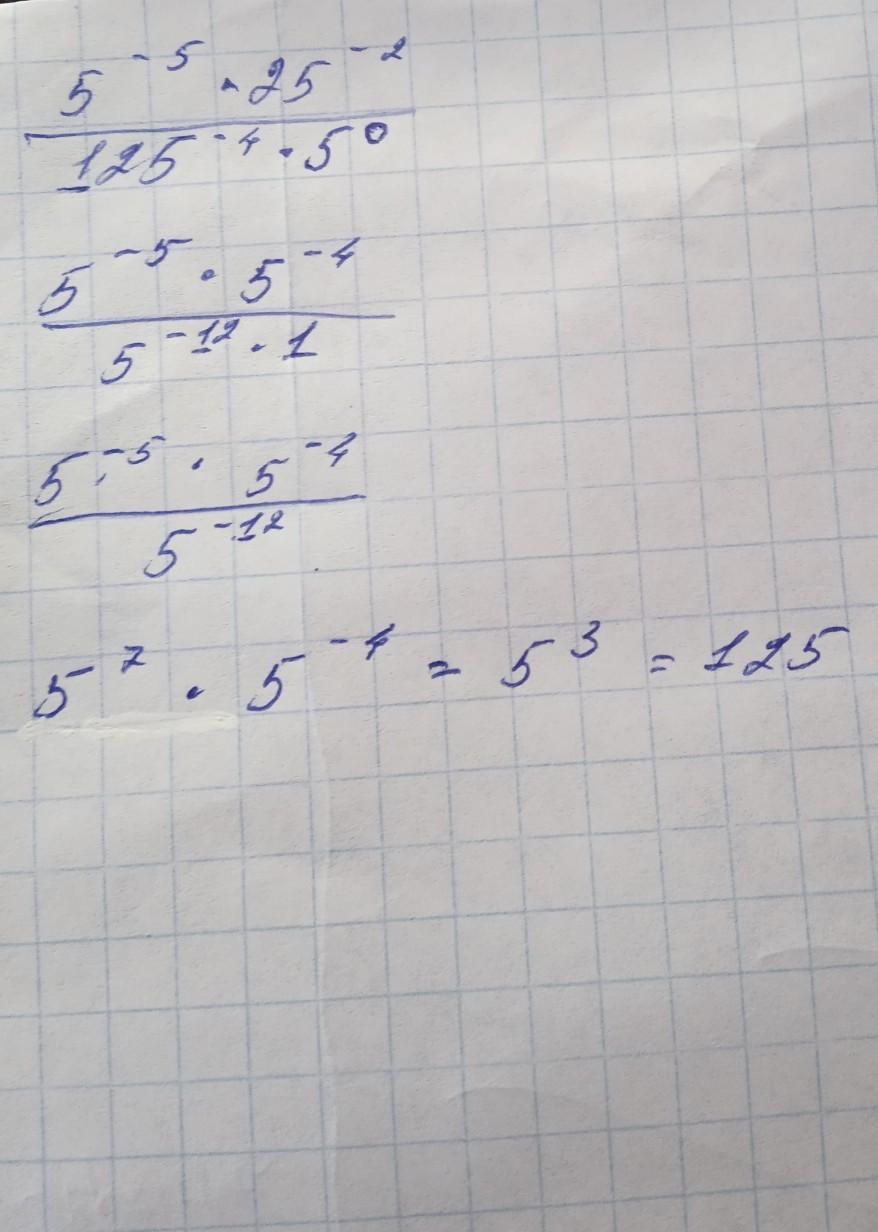 5⁻⁵ · 25⁻²
125⁻⁴ · 5⁰
5⁻⁵ · 5⁻⁴
5⁻¹² · 1
5⁻⁵ · 5⁻⁴
5⁻¹²
5⁷ · 5⁻⁴ = 5³ = 125